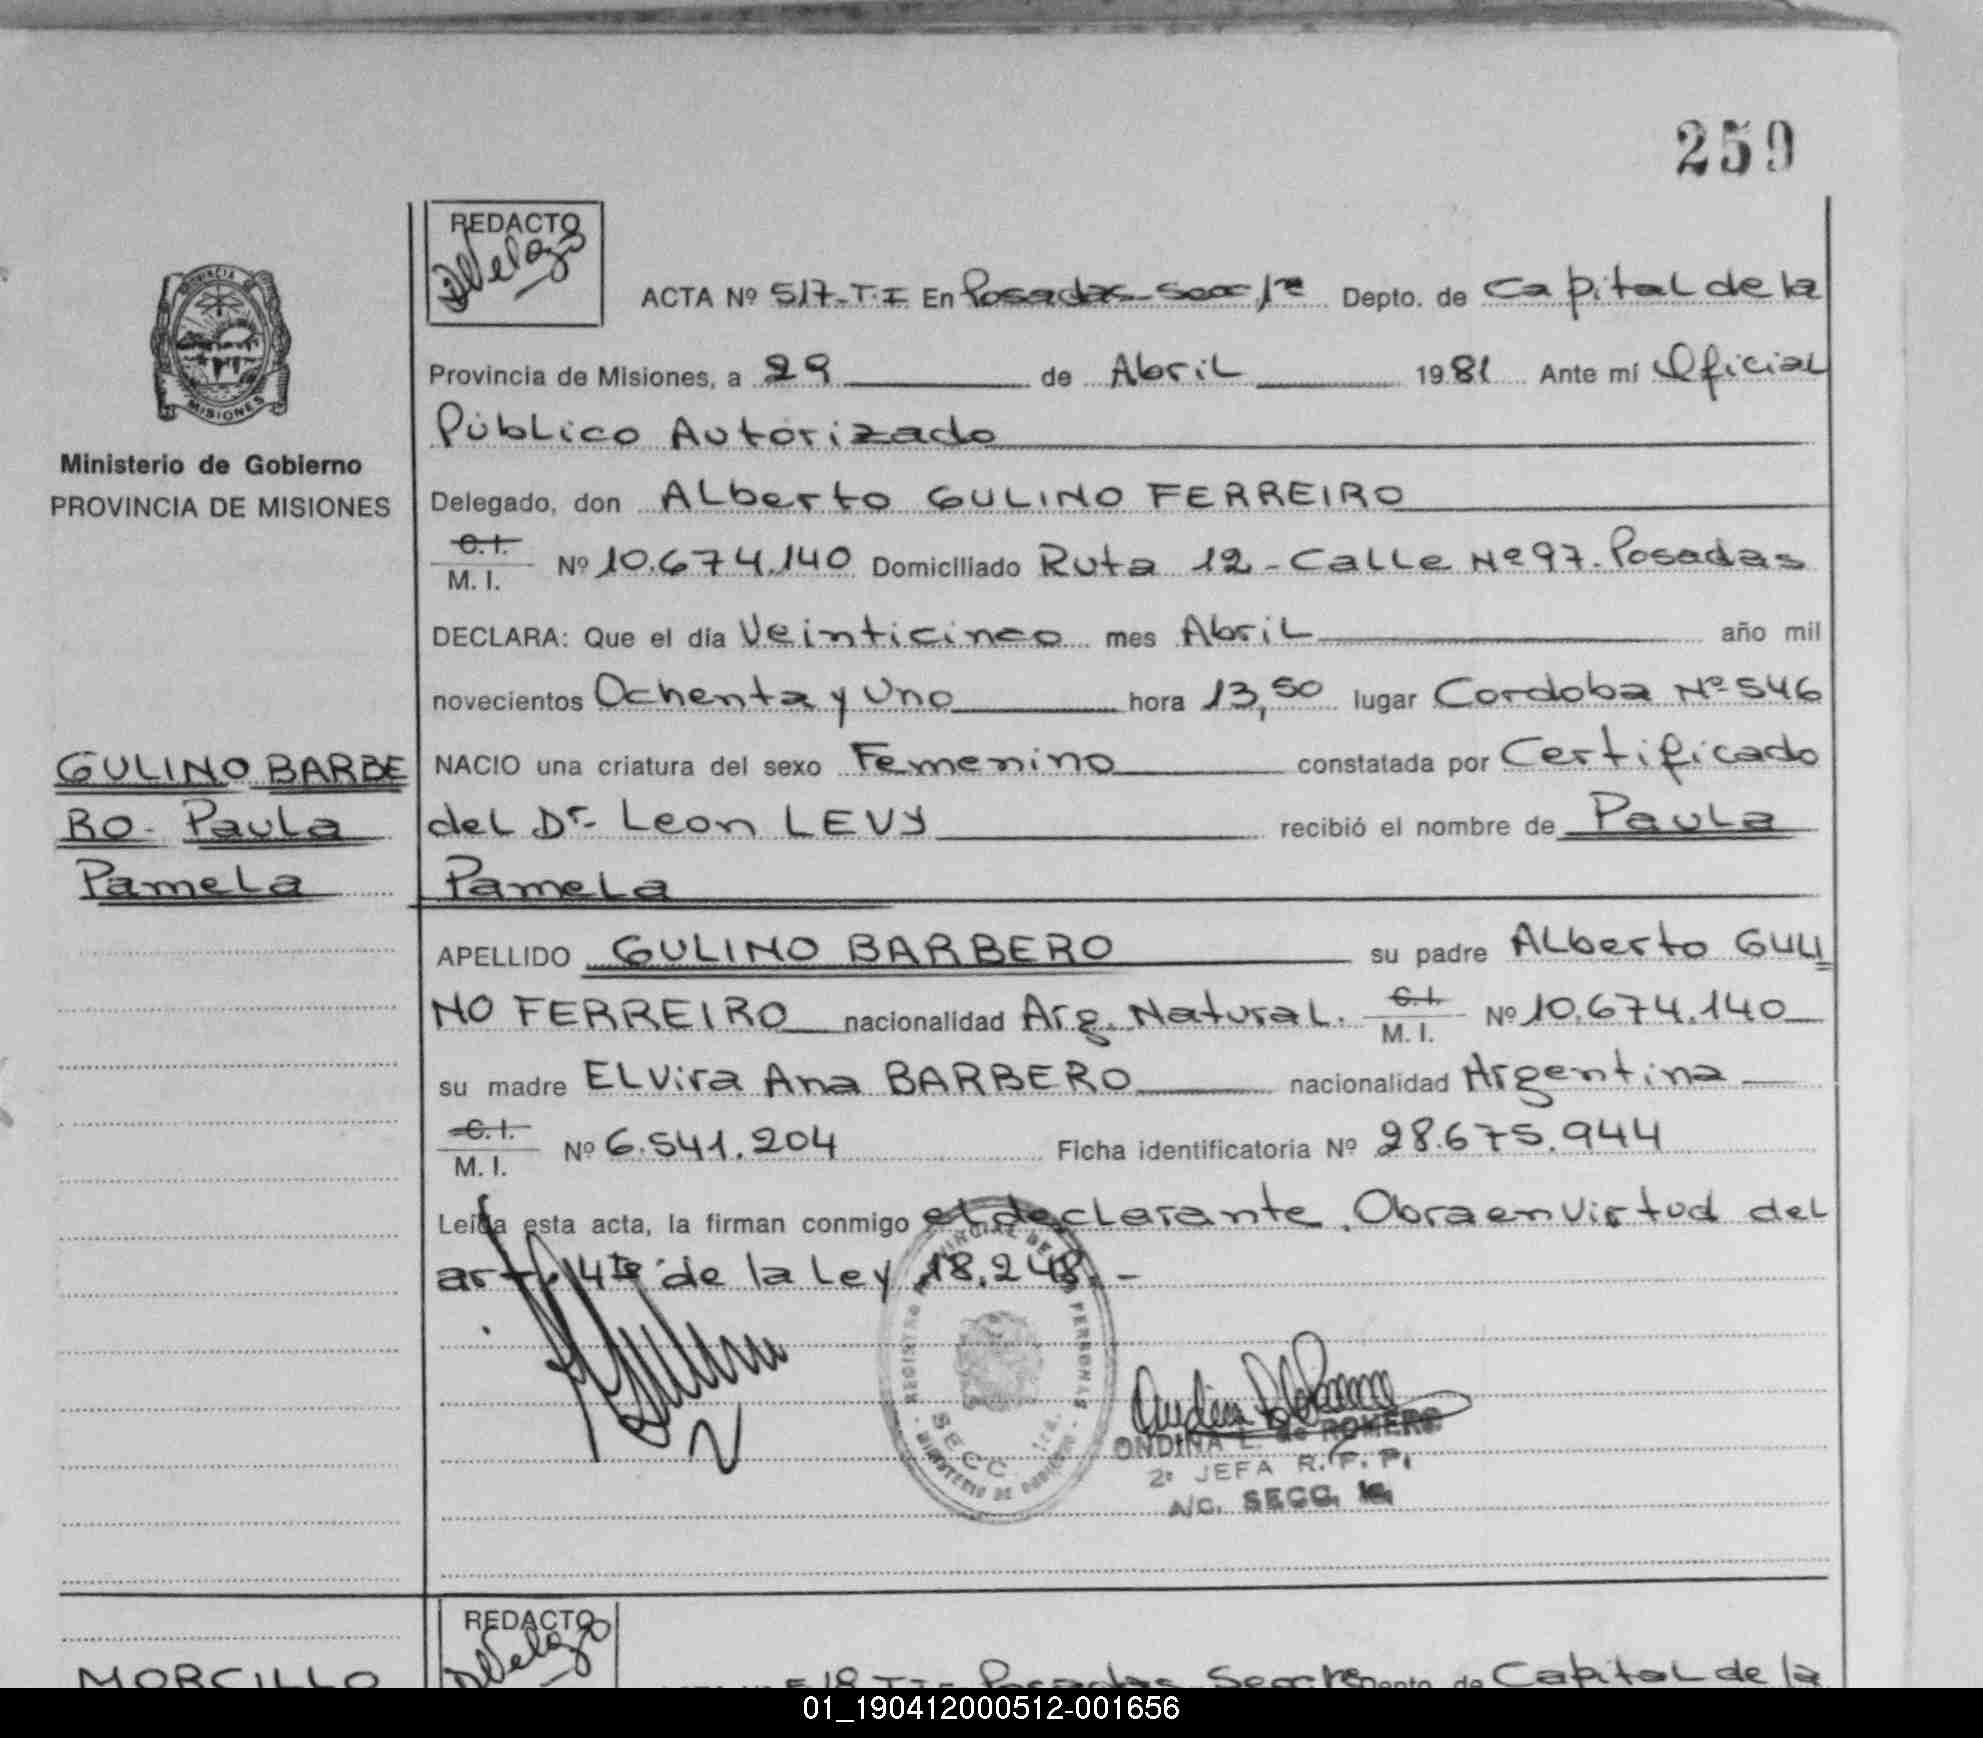 259
REDACTO
DVelazo
ACTA Nº 517-T.I En Posadas-Secc 1ra Depto. de Capital de la
Provincia de Misiones, a 29 de Abril 1981 Ante mí Oficial
Público Autorizado
PROVINCIA
MISIONES
Ministerio de Gobierno
PROVINCIA DE MISIONES
Delegado, don Alberto GULINO FERREIRO
C.I.
M. I. Nº 10.674.140 Domiciliado Ruta 12 - Calle Nº 97. Posadas
DECLARA: Que el día Veinticinco mes Abril año mil
novecientos Ochenta y Uno hora 13,50 lugar Cordoba Nº 546
GULINO BARBE
RO - Paula
Pamela
NACIO una criatura del sexo Femenino constatada por Certificado
del Dr. Leon LEVY recibió el nombre de Paula
Pamela
APELLIDO GULINO BARBERO su padre Alberto GULI
NO FERREIRO nacionalidad Arg. Natural. C.I. M. I. Nº 10.674.140
su madre Elvira Ana BARBERO nacionalidad Argentina
C. I.
M. I. Nº 6.541.204 Ficha identificatoria Nº 28.675.944
Leída esta acta, la firman conmigo el declarante. Obra en Virtud del
art. 4to de la Ley 18.248. -
REGISTRO PROVINCIAL DE LAS PERSONAS
SECC 1ra.
MINISTERIO DE GOBIERNO
ONDINA L. de ROMERO
2ª JEFA R. P. P.
A/C. SECC. 1a.
REDACTO
DVelazo
MORCILLO
518 T.I Posadas Secc 1ra Depto. de Capital de la
01_190412000512-001656